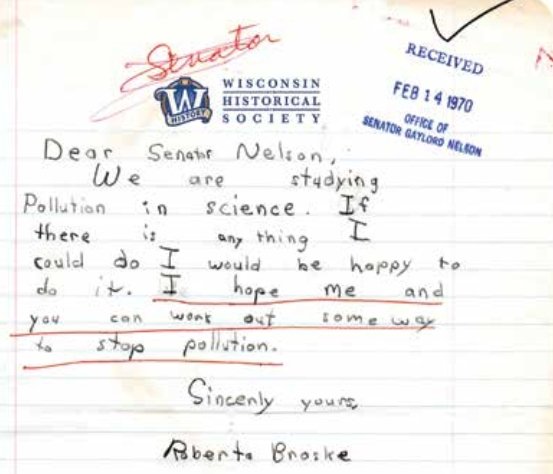 Senator
WISCONSIN
HISTORICAL
SOCIETY
W
HISTORY
RECEIVED
FEB 14 1970
OFFICE OF
SENATOR GAYLORD NELSON
Dear Senator Nelson,
We are studying
Pollution in science. If
there is any thing I
could do I would be happy to
do it. I hope me and
you can work out some way
to stop pollution.
Sincenly yours,
Roberta Broske